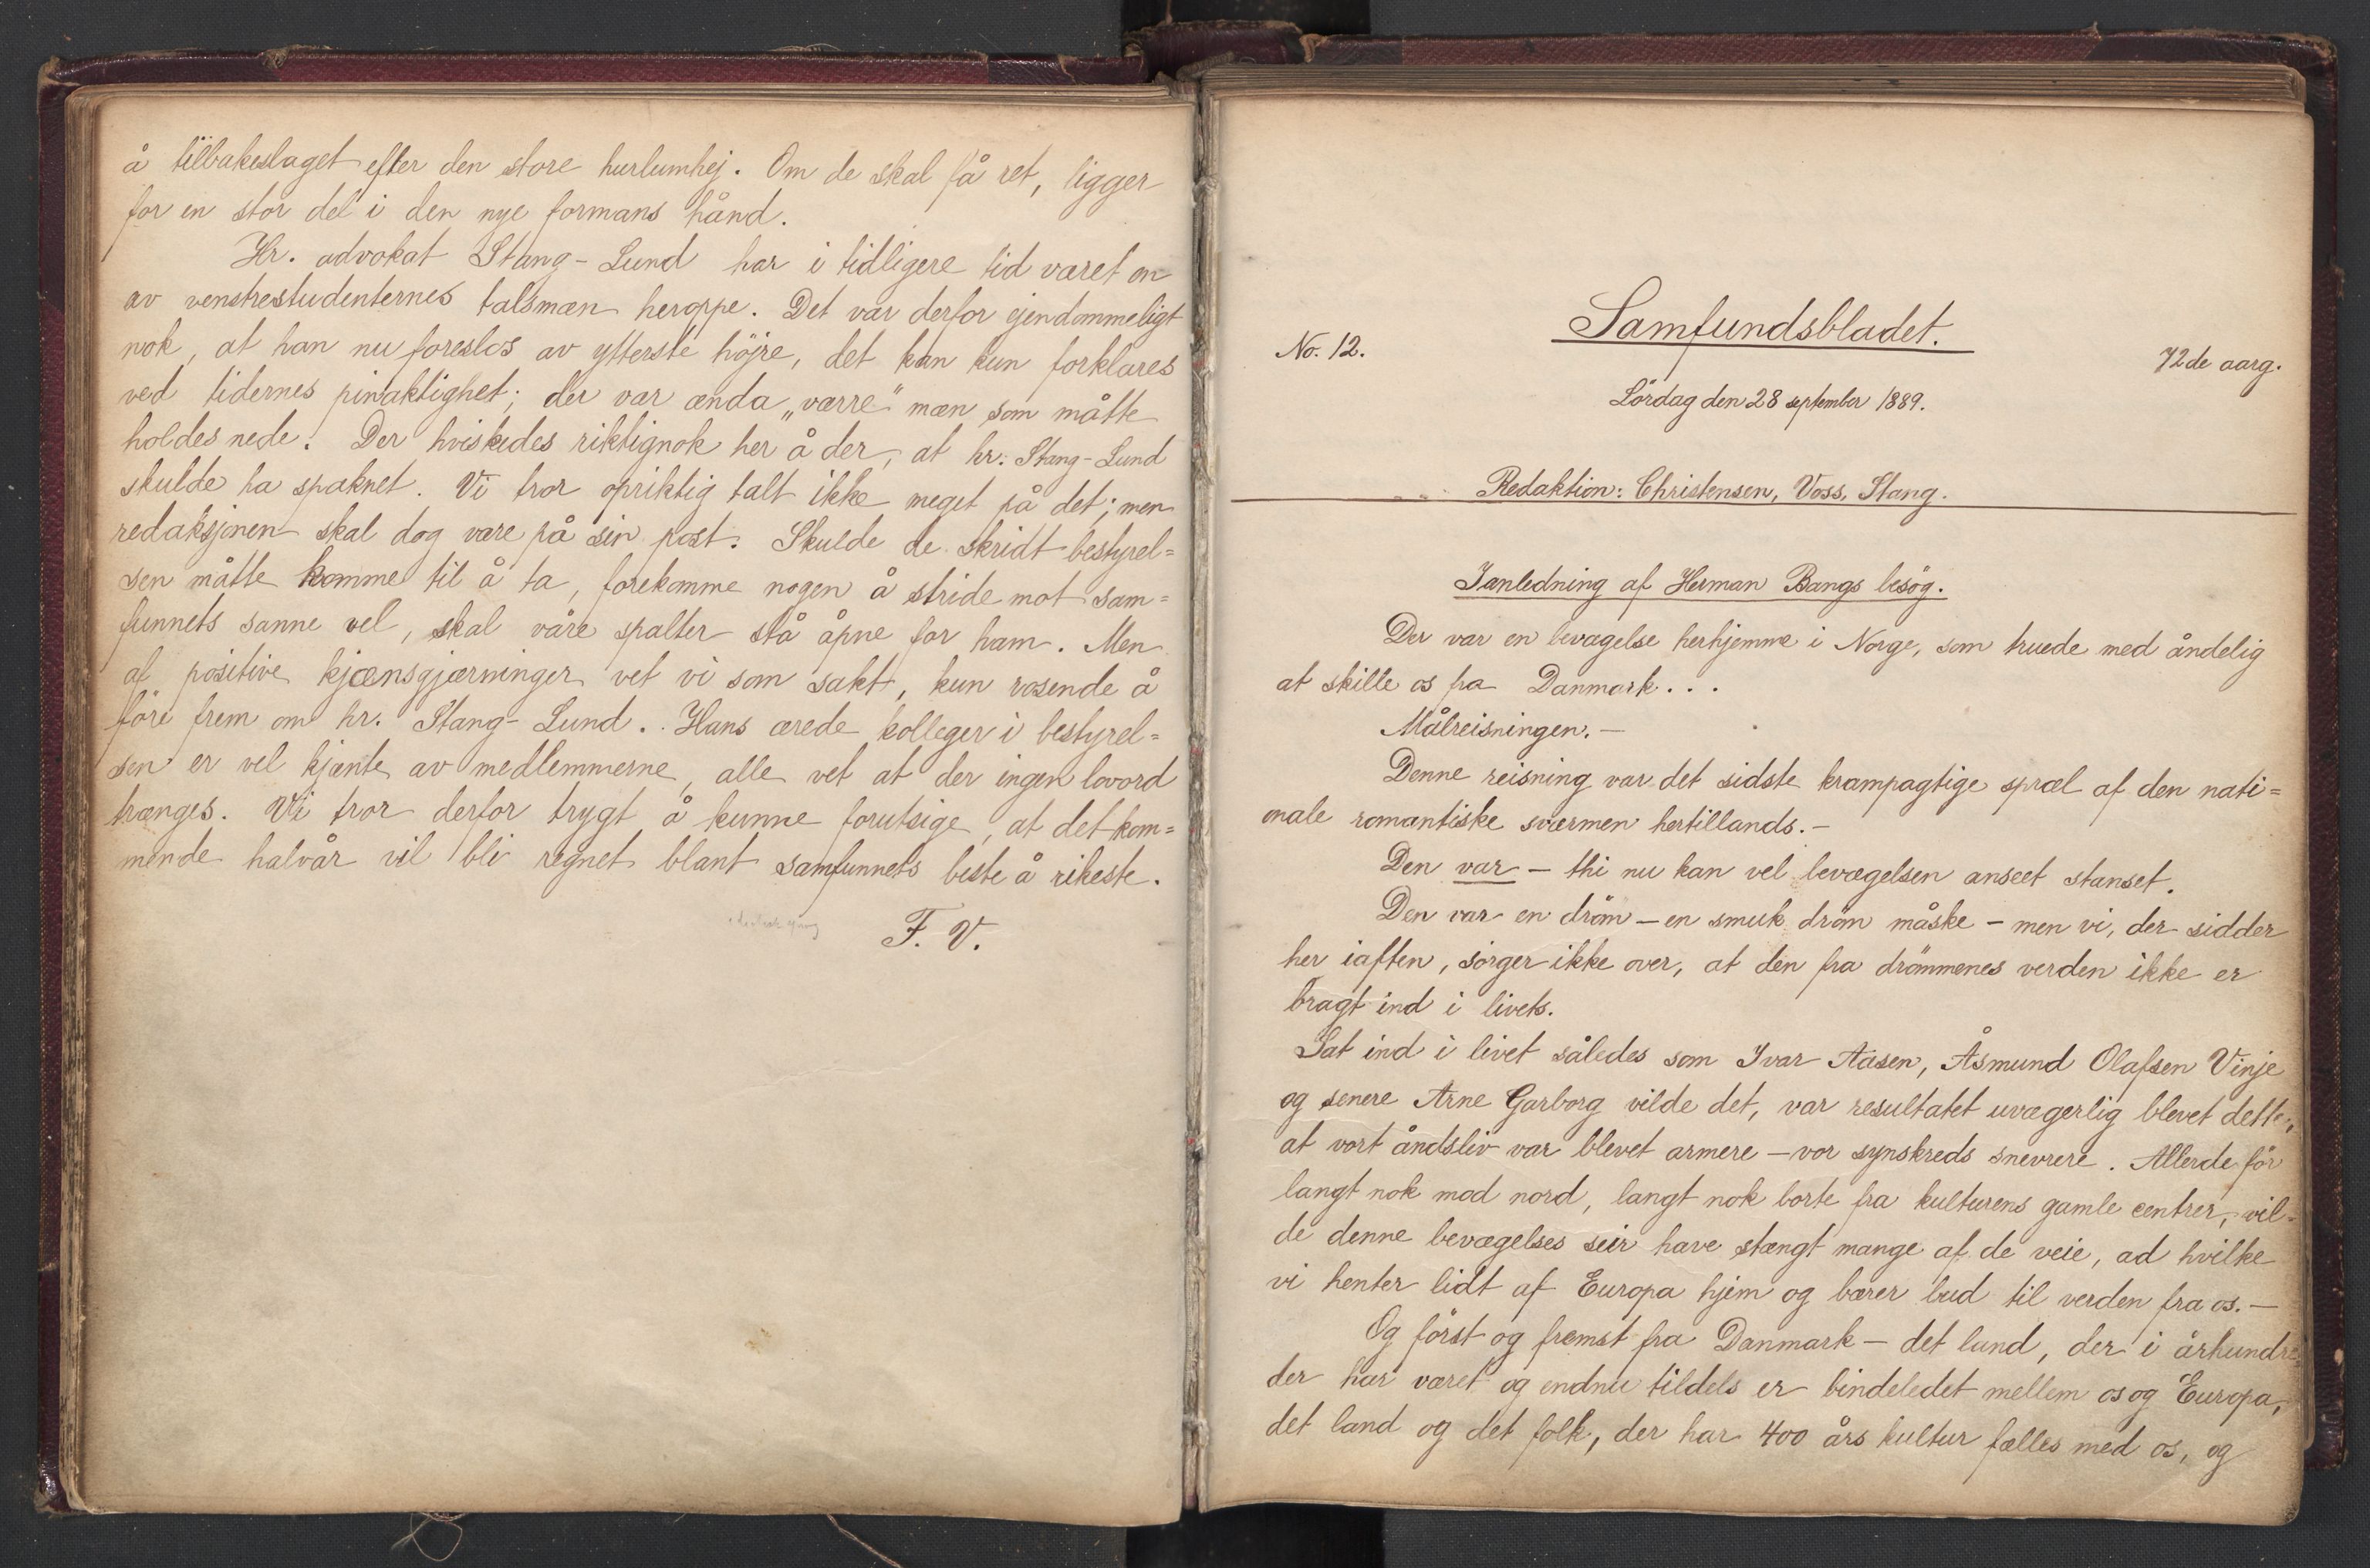 å tilbakeslaget efter den store hurlumhej. Om de skal få ret, ligger
for en stor del i den nye formans hånd.
Hr. advokat Stang-Lund har i tidligere tid været en
av venstrestudenternes talsmæn heroppe. Det var derfor ejendommeligt
nok, at han nu foreslos av ytterste höjre, det kan kun forklares
ved tidernes pinaktighet; der var ænda „værre" mæn som måtte
holdes nede. Der hviskedes riktignok her å der, at hr. Stang-Lund
skulde ha spaknet. Vi tror opriktig talt ikke meget på det; men
redaksjonen skal dog være på sin post. Skulde de skridt bestyrel=
sen måtte komme til å ta, forekomme nogen å stride mot sam=
funnets sanne vel, skal våre spalter stå åpne for ham. Men
af positive kjænsgjærninger vet vi som sakt, kun rosende å
före frem om hr. Stang-Lund. Hans ærede kolleger i bestyrel=
sen er vel kjænte av medlemmerne, alle vet at der ingen lovord
trænges. Vi tror derfor trygt å kunne forutsige, at det kom=
mende halvår vil bli regnet blant samfunnets beste å rikeste.
F. V.
Samfundsbladet.
No. 12.
72de aarg.
Lördag den 28 september 1889.
Redaktion: Christensen, Voss, Stang.
Ianledning af Herman Bangs besög.
Der var en bevægelse herhjemme i Norge, som truede med åndelig
at skille os fra Danmark...
Målreisningen. —
Denne reisning var det sidste krampagtige spræl af den nati=
onale romantiske sværmen hertillands. —
Den var — thi nu kan vel bevægelsen anseet stanset.
Den var en dröm — en smuk dröm måske — men vi, der sidder
her iaften, sörger ikke over, at den fra drömmenes verden ikke er
bragt ind i livets.
Sat ind i livet således som Ivar Aasen, Åsmund Olafsen Vinje
og senere Arne Garborg vilde det, var resultatet uvægerlig blevet dette,
at vort åndsliv var blevet armere — vor synskreds snevrere. Allerde för
langt nok mod nord, langt nok borte fra kulturens gamle centrer, vil=
de denne bevægelses seir have stængt mange af de veie, ad hvilke
vi henter lidt af Europa hjem og bærer bud til verden fra os. —
Og först og fremst fra Danmark — det land, der i århundre=
der har været og endnu tildels er bindeledet mellem os og Europa,
det land og det folk, der har 400 års kultur fælles med os, og